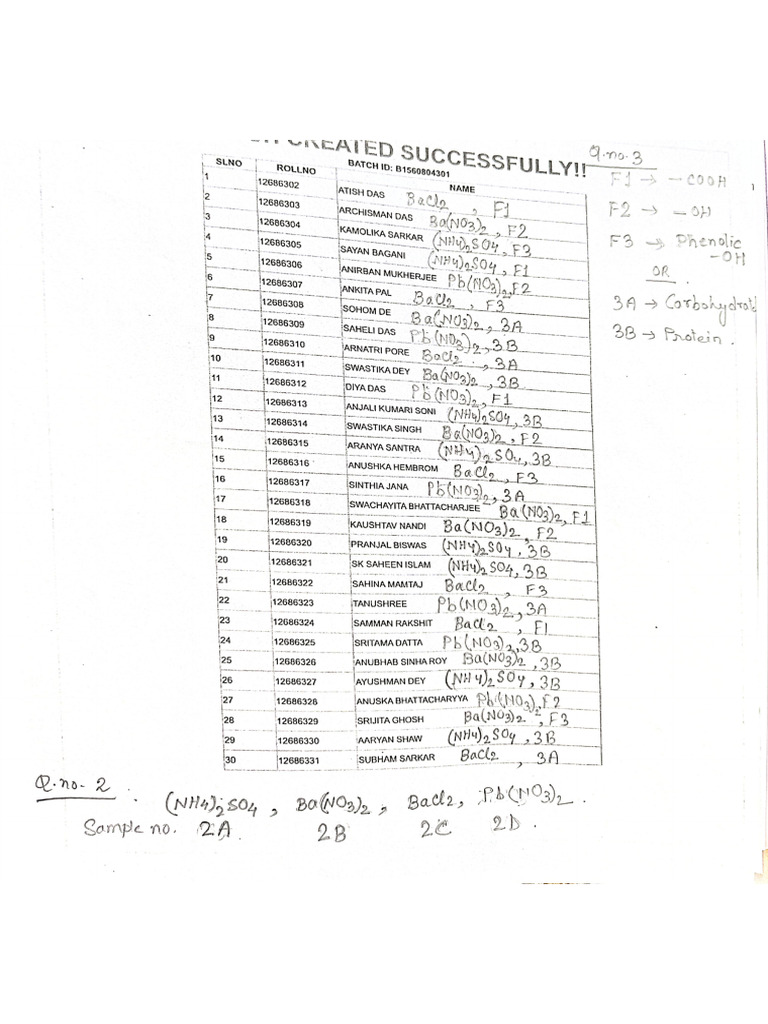 CREATED SUCCESSFULLY!!
BATCH ID: B1560804301
SLNO ROLLNO NAME
1 12686302 ATISH DAS BaCl2, F1
2 12686303 ARCHISMAN DAS Ba(NO3)2, F2
3 12686304 KAMOLIKA SARKAR (NH4)2SO4, F3
4 12686305 SAYAN BAGANI (NH4)2SO4, F1
5 12686306 ANIRBAN MUKHERJEE Pb(NO3)2, F2
6 12686307 ANKITA PAL BaCl2, F3
7 12686308 SOHOM DE Ba(NO3)2, 3A
8 12686309 SAHELI DAS Pb(NO3)2, 3B
9 12686310 ARNATRI PORE BaCl2, 3A
10 12686311 SWASTIKA DEY Ba(NO3)2, 3B
11 12686312 DIYA DAS Pb(NO3)2, F1
12 12686313 ANJALI KUMARI SONI (NH4)2SO4, 3B
13 12686314 SWASTIKA SINGH Ba(NO3)2, F2
14 12686315 ARANYA SANTRA (NH4)2SO4, 3B
15 12686316 ANUSHKA HEMBROM BaCl2, F3
16 12686317 SINTHIA JANA Pb(NO3)2, 3A
17 12686318 SWACHAYITA BHATTACHARJEE Ba(NO3)2, F1
18 12686319 KAUSHTAV NANDI Ba(NO3)2, F2
19 12686320 PRANJAL BISWAS (NH4)2SO4, 3B
20 12686321 SK SAHEEN ISLAM (NH4)2SO4, 3B
21 12686322 SAHINA MAMTAJ BaCl2, F3
22 12686323 TANUSHREE Pb(NO3)2, 3A
23 12686324 SAMMAN RAKSHIT BaCl2, F1
24 12686325 SRITAMA DATTA Pb(NO3)2, 3B
25 12686326 ANUBHAB SINHA ROY Ba(NO3)2, 3B
26 12686327 AYUSHMAN DEY (NH4)2SO4, 3B
27 12686328 ANUSKA BHATTACHARYYA Pb(NO3)2, F2
28 12686329 SRIJITA GHOSH Ba(NO3)2, F3
29 12686330 AARYAN SHAW (NH4)2SO4, 3B
30 12686331 SUBHAM SARKAR BaCl2, 3A
Q.no.3
F1 → -COOH
F2 → -OH
F3 → Phenolic
-OH
OR
3A → Carbohydrate
3B → Protein.
Q.no. 2
(NH4)2SO4, Ba(NO3)2, BaCl2, Pb(NO3)2.
Sample no. 2A 2B 2C 2D.